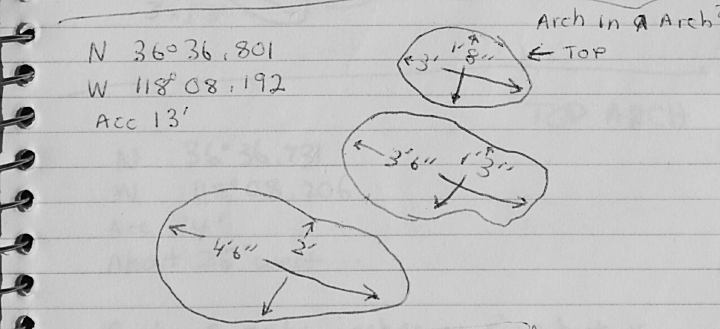 Arch in A Arch
N 36° 36.801
W 118° 08.192
Acc 13'
3' 1' 8"
← TOP
3'6" 1' 3"
4'6" 2'